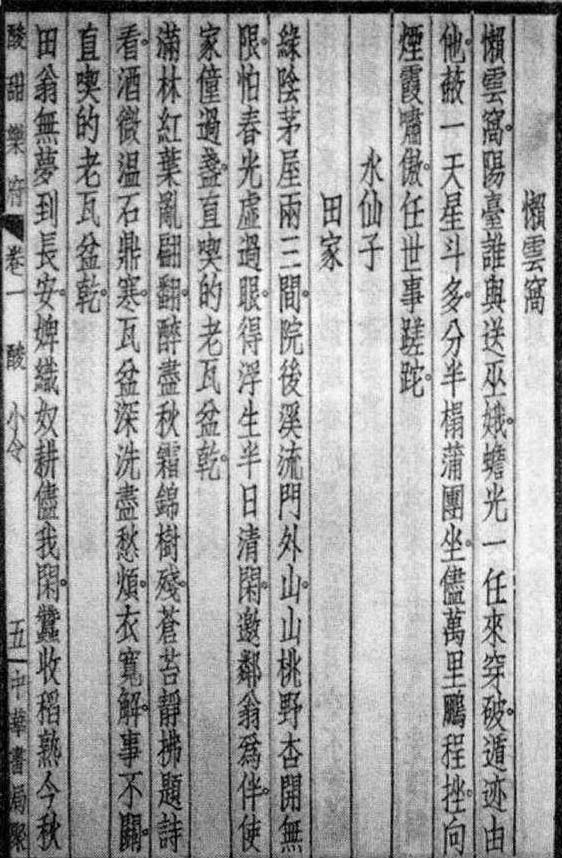 懶雲窩
懶雲窩。陽臺誰與送巫娥。蟾光一任來穿破。遁迹由
他。蔽一天星斗多。分半榻蒲團坐。儘萬里鵬程挫。向
煙霞嘯傲。任世事蹉跎。
水仙子
田家
綠陰茅屋兩三間。院後溪流門外山。山桃野杏開無
限。怕春光虛過眼。得浮生半日清閑。邀鄰翁爲伴。使
家僮過盞。直喫的老瓦盆乾。
滿林紅葉亂翩翻。醉盡秋霜錦樹殘。蒼苔靜拂題詩
看。酒微温石鼎寒。瓦盆深洗盡愁煩。衣寬解。事不關。
直喫的老瓦盆乾。
田翁無夢到長安。婢織奴耕儘我閑。蠶收稻熟今秋
酸甜樂府 卷一 酸 小令 五 中華書局聚